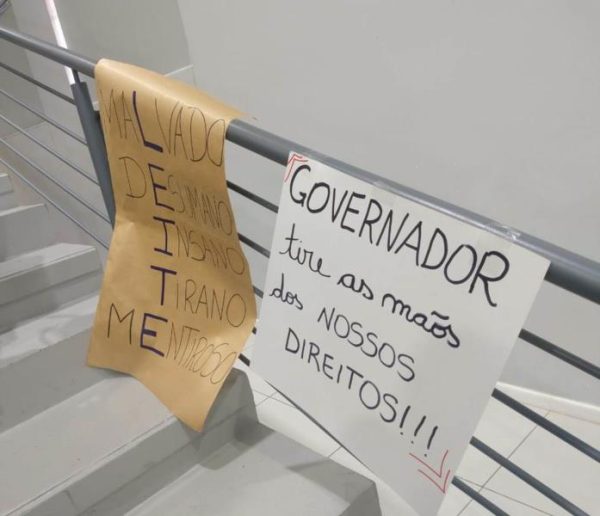 MALVADO
DESUMANO
INSANO
TIRANO
MENTIROSO
GOVERNADOR
tire as mãos
dos NOSSOS
DIREITOS!!!